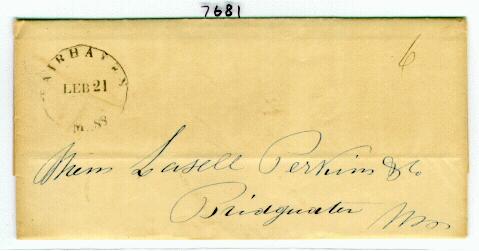 7681
FAIRHAVEN
LEB 21
MASS
6
Mess Lasell Perkins & Co
Bridgwater
Mss